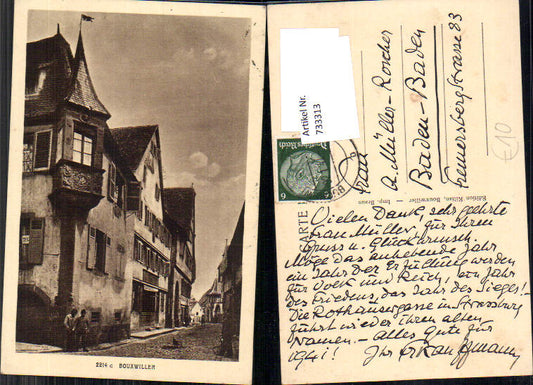 2214 c BOUXWILLER
Artikel Nr.
733313
CARTE
Deutsches Reich
6
Frau
A. Müller-Roscher
Baden-Baden
Fremersbergstrasse 83
€10
Edition Kitzan, Bouxwiller - Imp. Braun
Vielen Dank, sehr geehrte
Frau Müller, für Ihren
Gruss u. Glückwunsch.
Möge das anhebende Jahr
ein Jahr der Erfüllung werden
für Volk und Reich, ein Jahr
des Friedens, das Jahr des Sieges! -
Die Rothausergasse in Strassburg
führt wieder ihren alten
Namen. - Alles Gute für
1941!